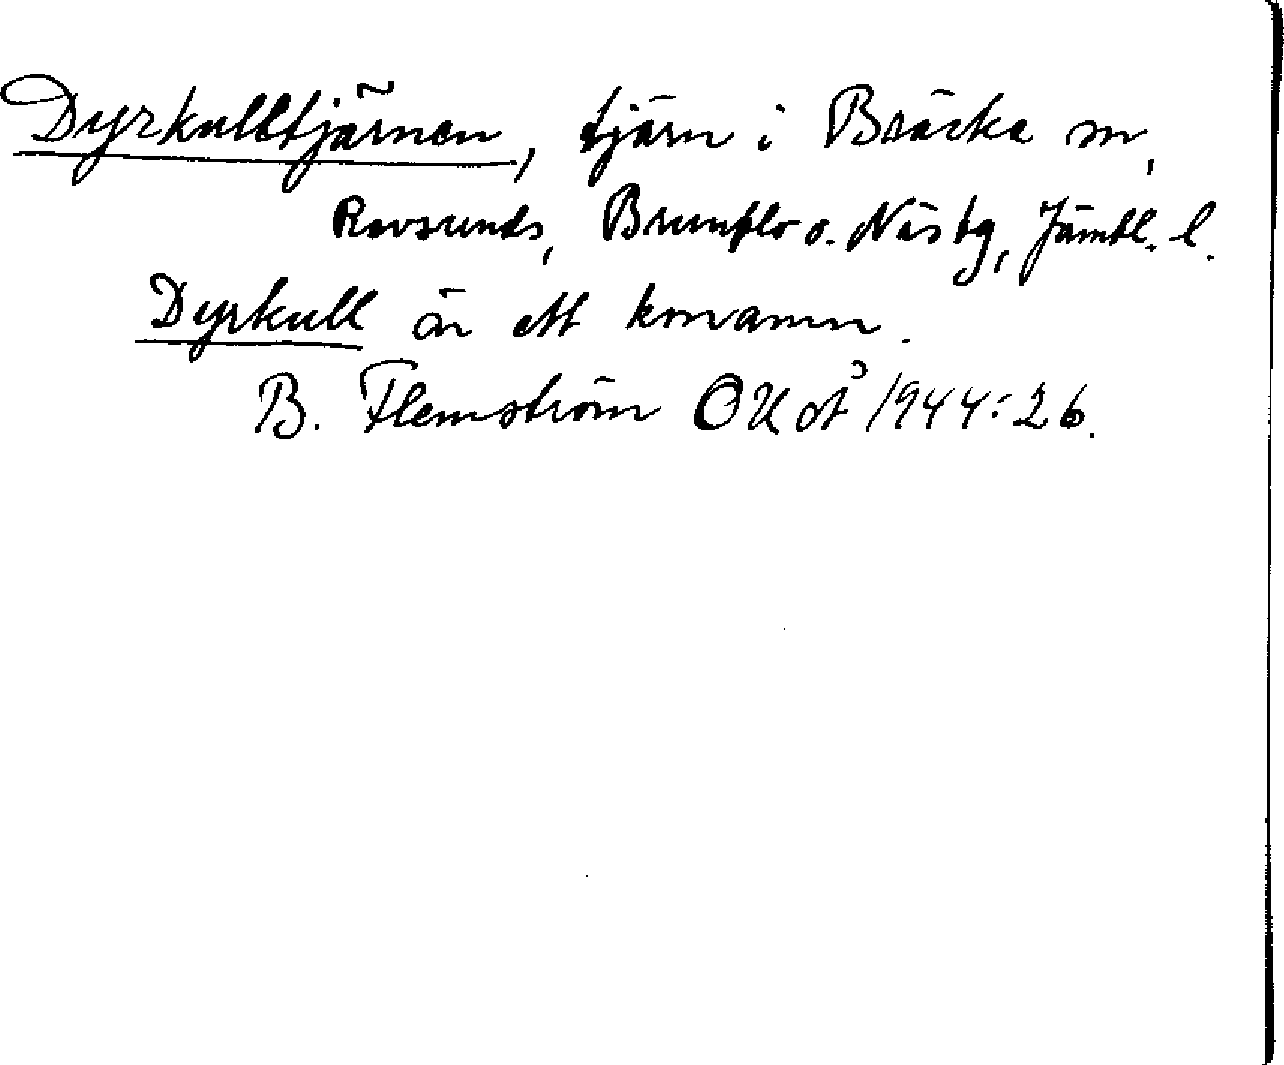 Dyrkulltjärnen, tjärn i Bräcke sn,
Revsunds, Brunflo o. Näs tg, Jämtl. l.
Dyrkull är ett konamn.
B. Flemström OUoÅ 1944:26.